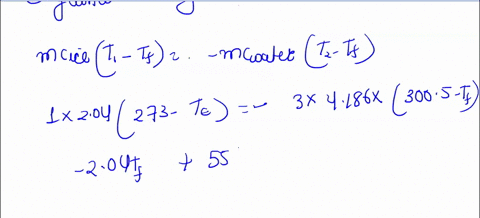 mCice(T₁ - T_f) = - mCwater(T₂ - T_f)
1 × 2.04 (273 - T_f) = - 3 × 4.186 × (300.5 - T_f)
-2.04T_f + 55